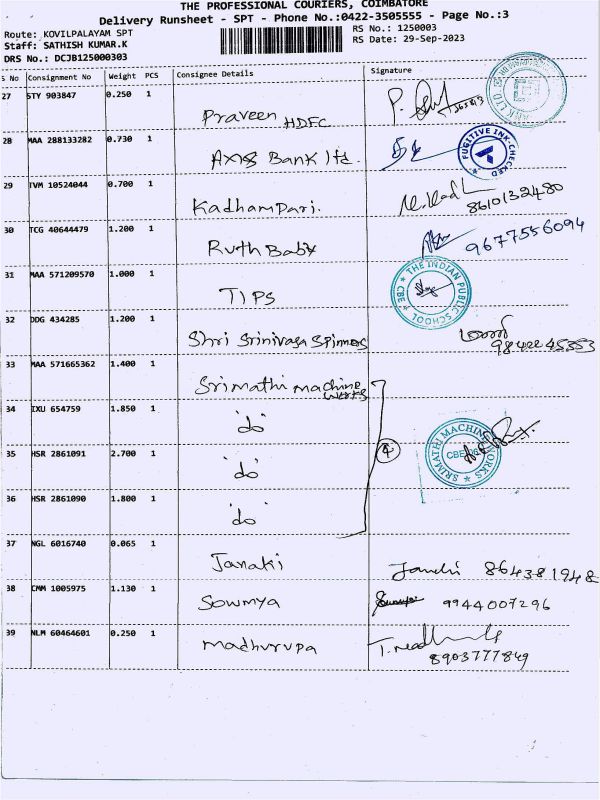 THE PROFESSIONAL COURIERS, COIMBATORE
Delivery Runsheet - SPT - Phone No.:0422-3505555 - Page No.:3
Route: KOVILPALAYAM SPT
RS No.: 1250003
Staff: SATHISH KUMAR.K
RS Date: 29-Sep-2023
DRS No.: DCJB125000303
S No Consignment No Weight PCS Consignee Details Signature
27 STY 903847 0.250 1 Praveen HDFC P.
28 MAA 288133282 0.730 1 Axis Bank ltd. FUGITIVE INK-CHECKED
29 TVM 10524044 0.700 1 Kadhampari. 8610132480
30 TCG 40644479 1.200 1 Ruth Baby 9677556094
31 MAA 571209570 1.000 1 TIPS THE INDIAN PUBLIC SCHOOL CBE
32 DDG 434285 1.200 1 Shri Srinivasa Spinners 9842245553
33 MAA 571665362 1.400 1 Srimathi machine works
34 IXU 654759 1.850 1 "do"
35 HSR 2861091 2.700 1 "do" 4 SRIMATHI MACHINE WORKS CBE
36 HSR 2861090 1.800 1 "do"
37 NGL 6016740 0.065 1 Janaki 864381948
38 CMM 1005975 1.130 1 Sowmya 9944007296
39 NLM 60464601 0.250 1 madhurupa 8903777849